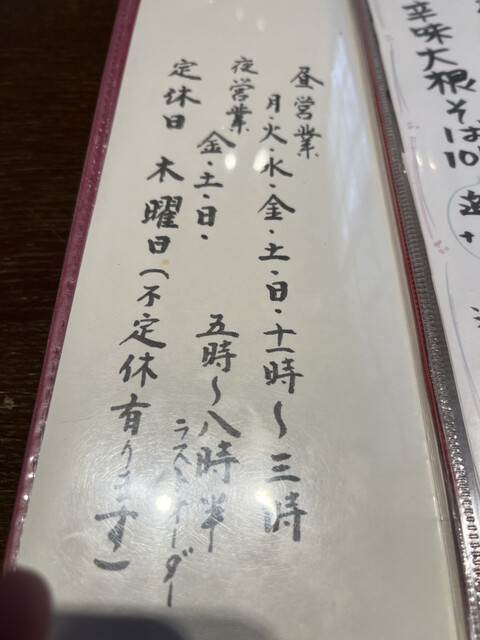 昼営業
月・火・水・金・土・日・十一時〜三時
夜営業
金・土・日・ 五時〜八時半
ラストオーダー
定休日
木曜日(不定休有ります)
辛味大根そば10